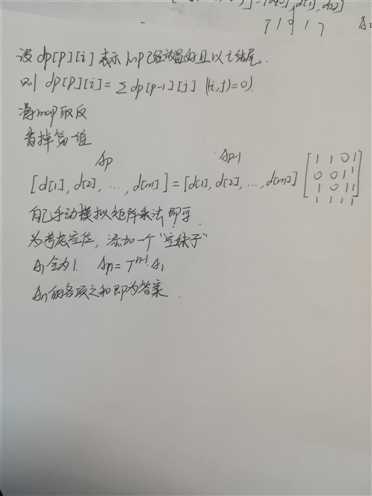 = [d[1], d[2]
7 1 9 1 7
设 dp[p][i] 表示 1~p 已经放置的且以 i 结尾.
则 dp[p][i] = Σ dp[p-1][j] (H(i,j)=0)
将map取反
舍掉第一维
Ap Ap-1
[d[1], d[2], ..., d[m]] = [d[1], d[2], ..., d[m]] [1 1 0 1
0 0 1 1
1 0 1 1
1 1 1 1]
自己手动模拟矩阵乘法即可
为考虑空位, 添加一个“空妹子”
A1全为1. An = T^n-1 A1
An的各项之和即为答案.